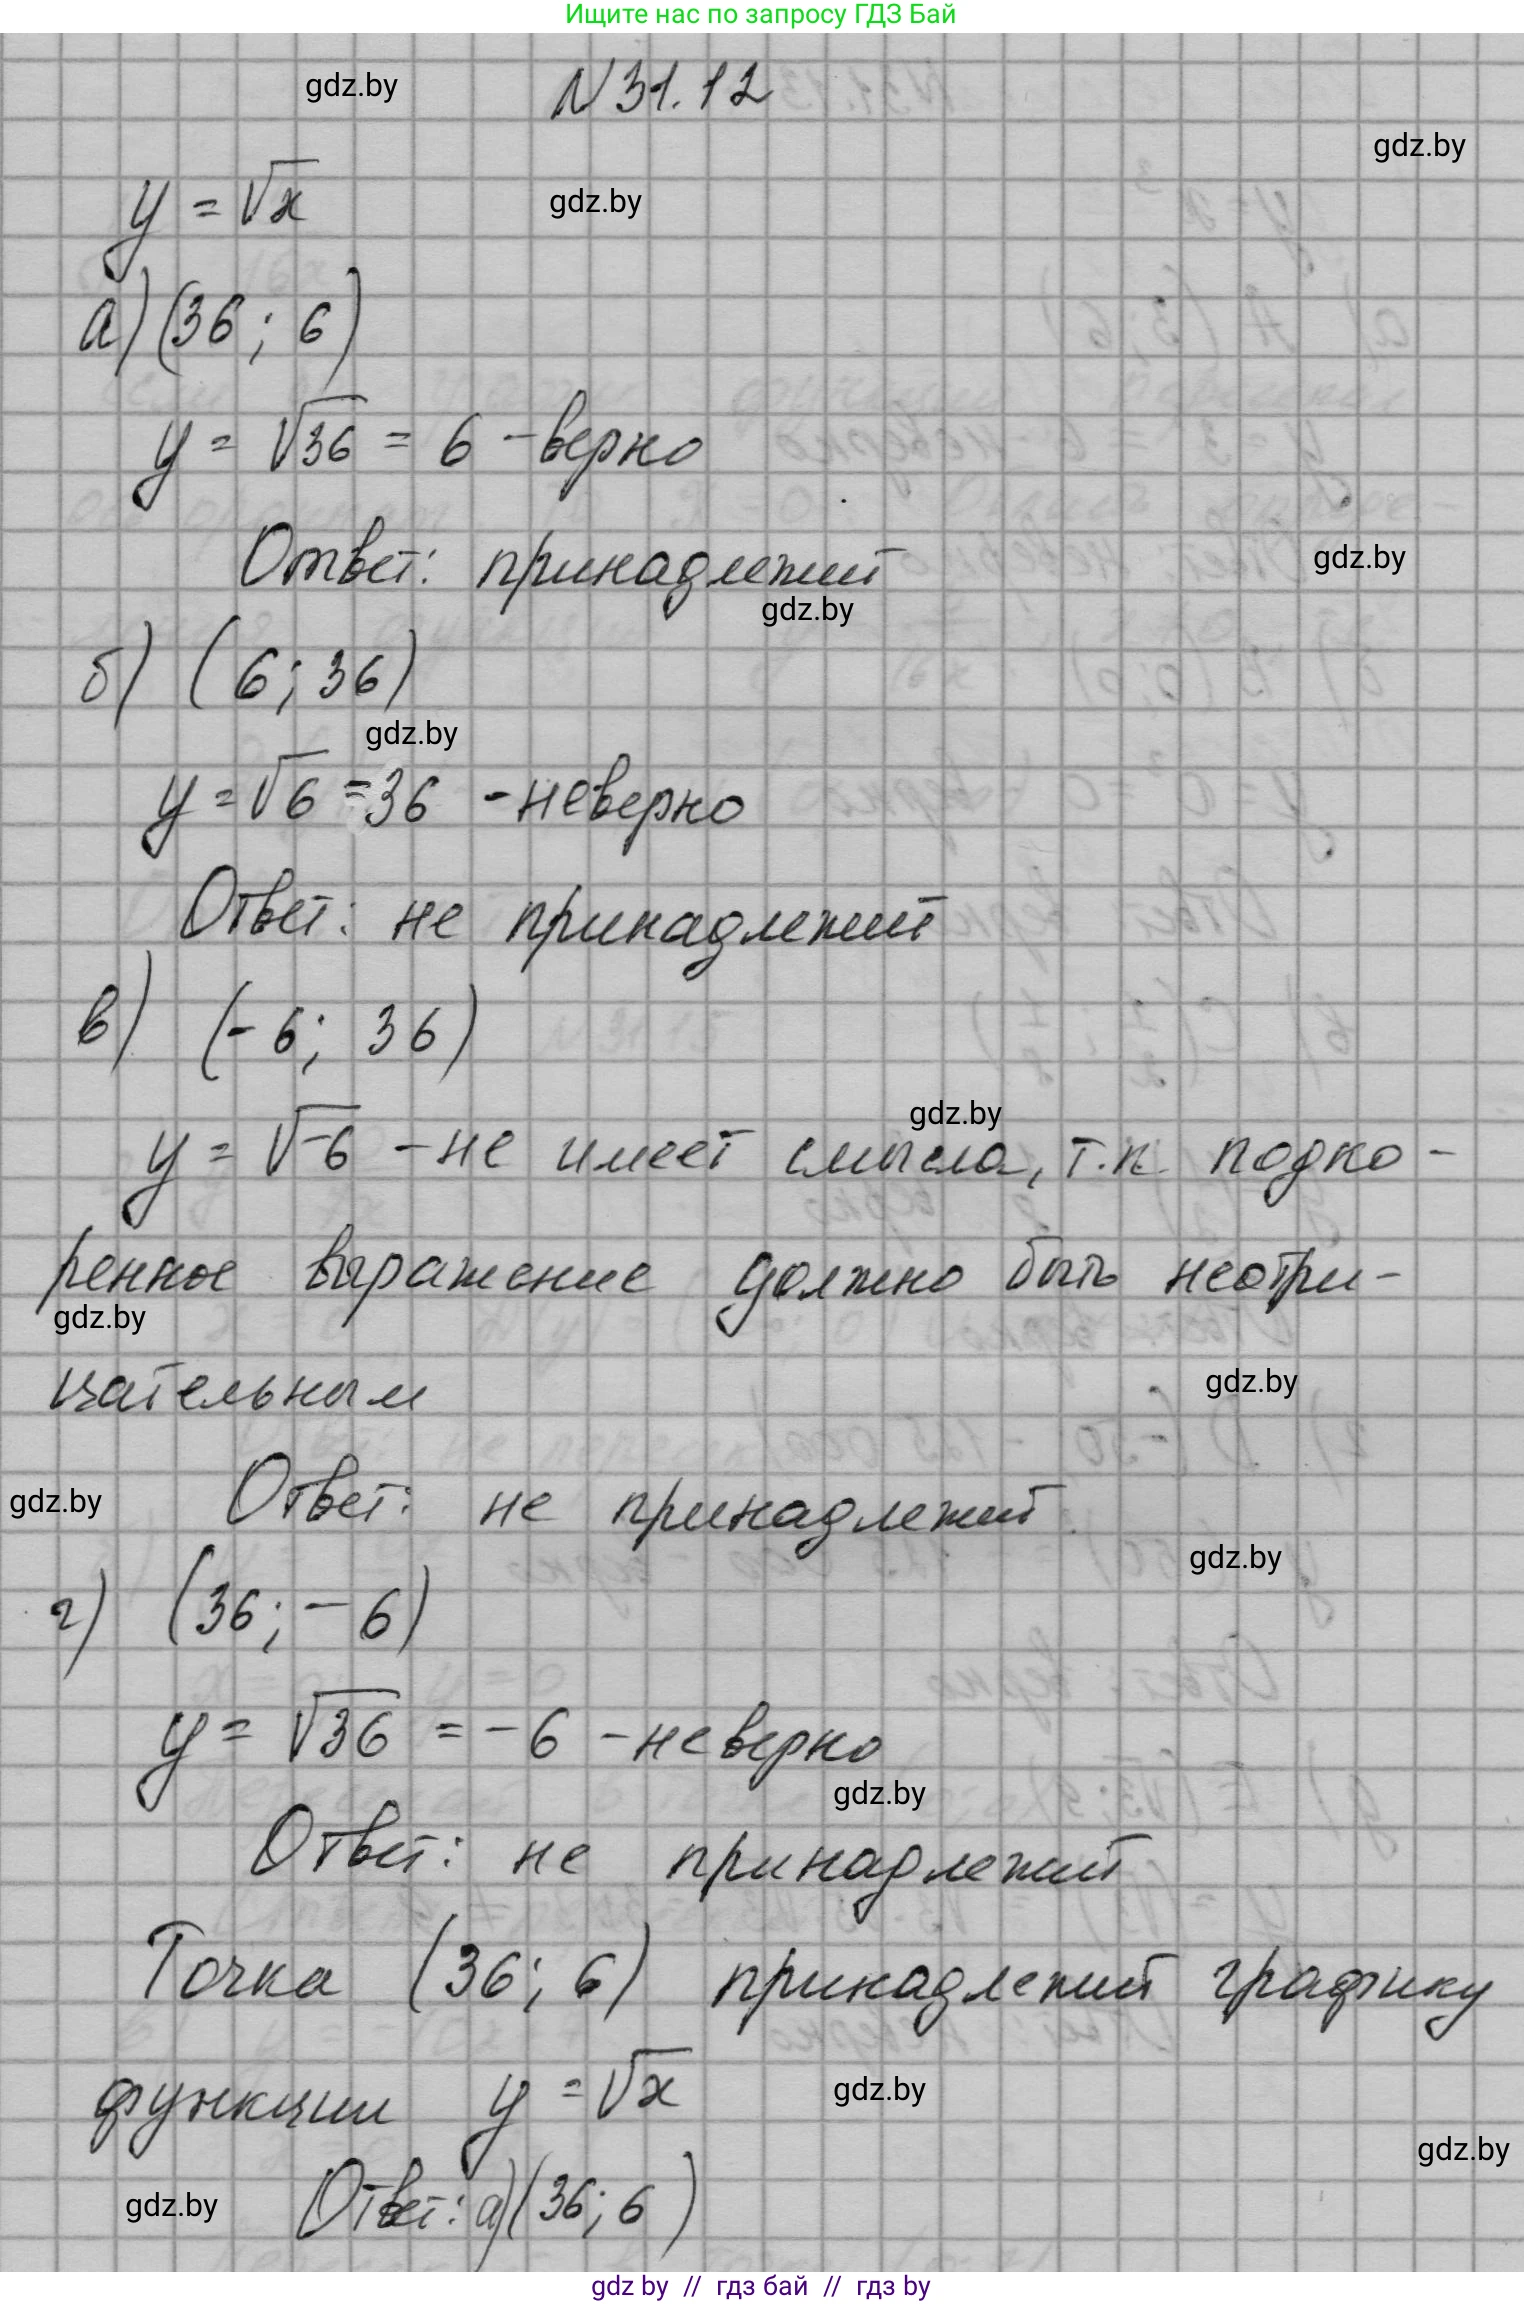 Ищите нас по запросу ГДЗ Бай
gdz.by
N 31.12
gdz.by
y = √x
gdz.by
а) (36; 6)
y = √36 = 6 - верно
Ответ: принадлежит
gdz.by
gdz.by
б) (6; 36)
gdz.by
y = √6 = 36 - неверно
Ответ: не принадлежит
в) (-6; 36)
gdz.by
y = √-6 - не имеет смысла, т.к. подко-
ренное выражение должно быть неотри-
gdz.by
цательным
gdz.by
Ответ: не принадлежит
gdz.by
gdz.by
г) (36; -6)
y = √36 = -6 - неверно
gdz.by
Ответ: не принадлежит
Точка (36; 6) принадлежит графику
функции y = √x
gdz.by
gdz.by
Ответ: а) (36; 6)
gdz.by
gdz by // гдз бай // гдз by